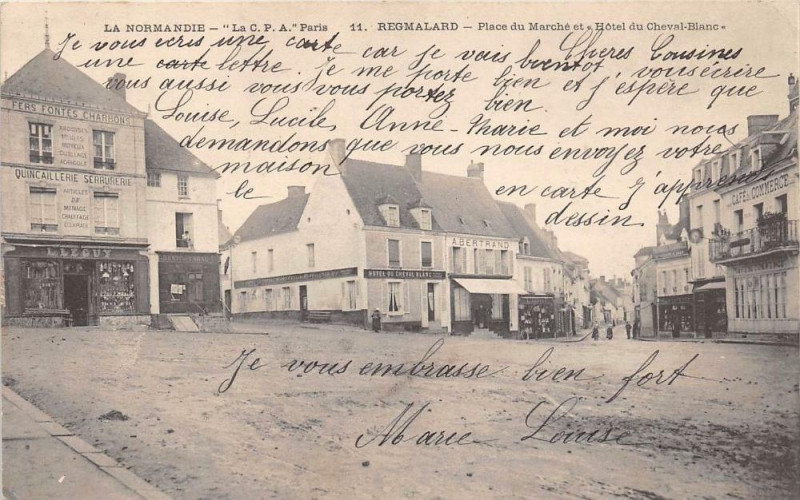 LA NORMANDIE – "La C. P. A." Paris 11. REGMALARD – Place du Marché et « Hôtel du Cheval-Blanc »
Cheres Cousines
Je vous écris une carte car je vais bientot vous écrire
une carte lettre. Je me porte bien et j'espère que
vous aussi vous vous portez bien.
Louise, Lucile, Anne-Marie et moi nous
demandons que vous nous envoyez votre
maison en carte. J'apprend
le dessin
Je vous embrasse bien fort
Marie Louise
FERS FONTES CHARBONS
QUINCAILLERIE SERRURERIE
ARTICLES
DE
MENAGE
CHAUFFAGE
ECLAIRAGE
HOTEL DU CHEVAL BLANC
A. BERTRAND
CAFÉ DU COMMERCE